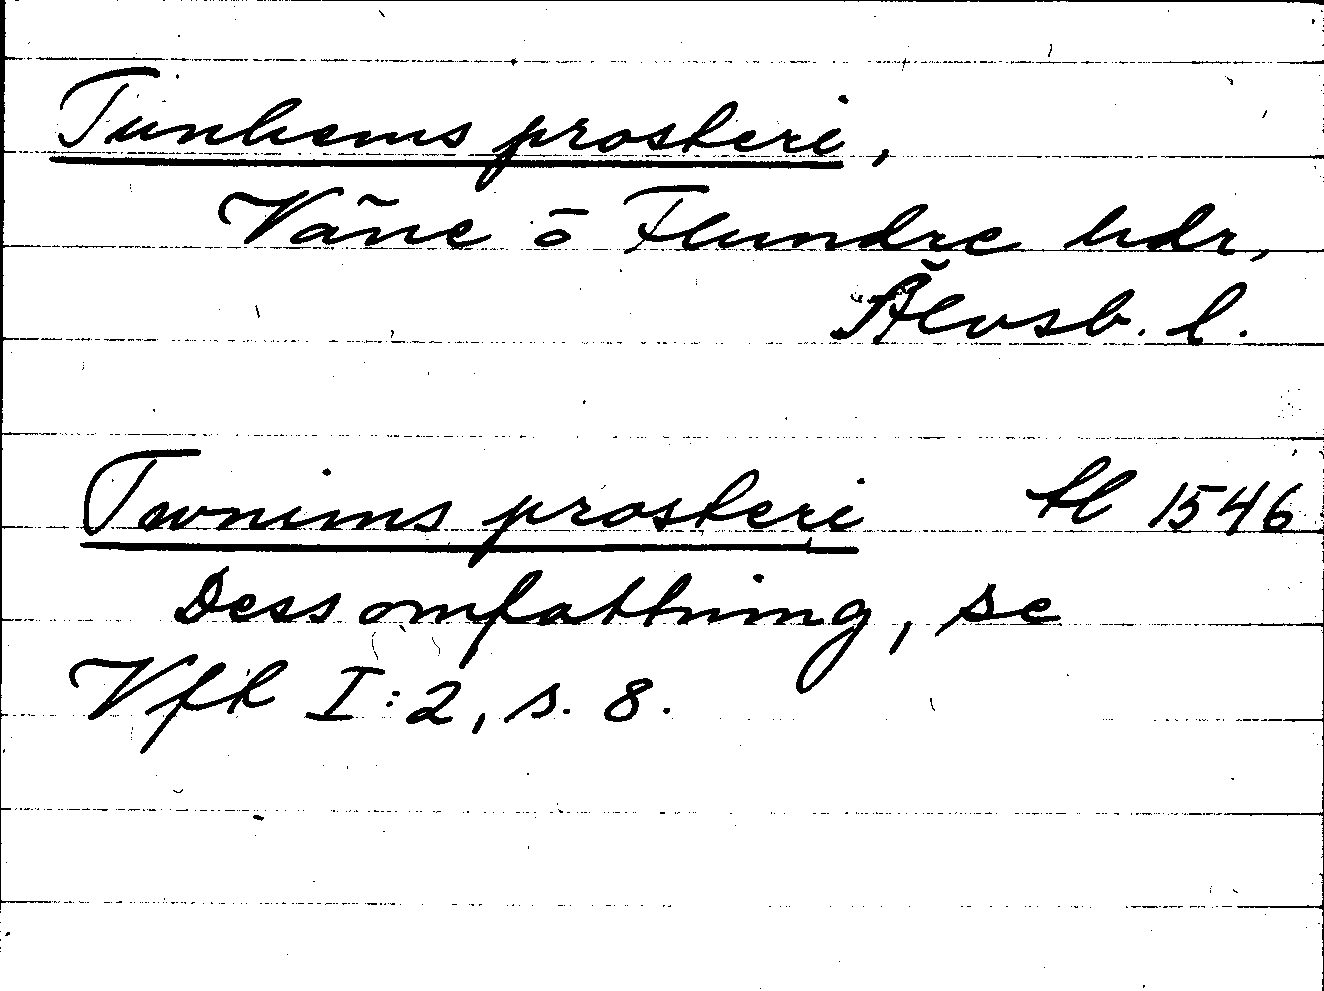 Tunhems prosteri,
Väne o Flundre hdr,
Älvsb. l.
Twnims prosteri tl 1546
Dess omfattning, se
Vfk I:2, s. 8.